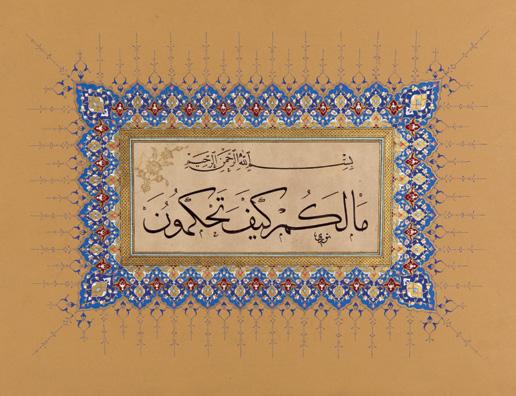 بسم الله الرحمن الرحيم
مَا لَكُمْ كَيْفَ تَحْكُمُونَ